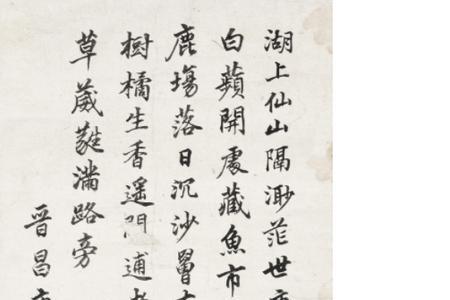 湖上仙山隔渺茫世
白蘋開處藏魚市
鹿塲落日沉沙罾
樹橘生香遥門逋
草葳蕤滿路旁
晉昌